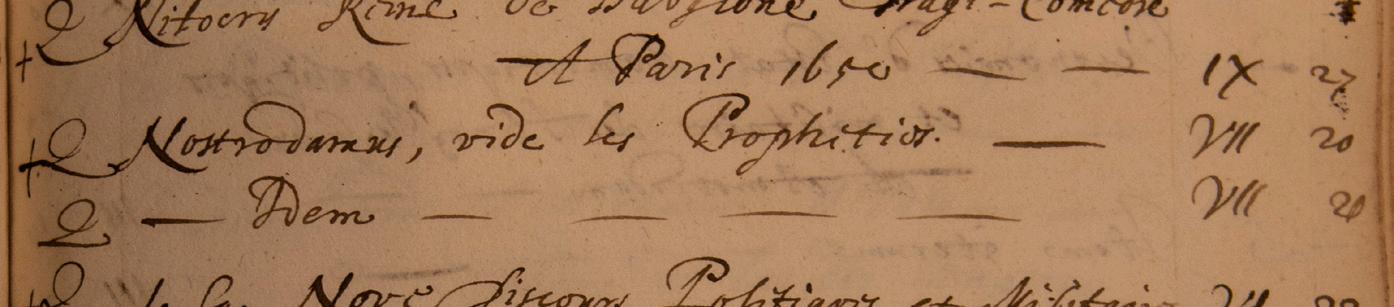 2 Nitocris Reine de Babylone Tragi-Comedie
+ A Paris 1650 — — IX 27
+ 2 Nostrodamus, vide les Propheties. — VII 20
2 — Idem — — — — VII 20
2 de la Nove Discours Politiques et Militaires VI